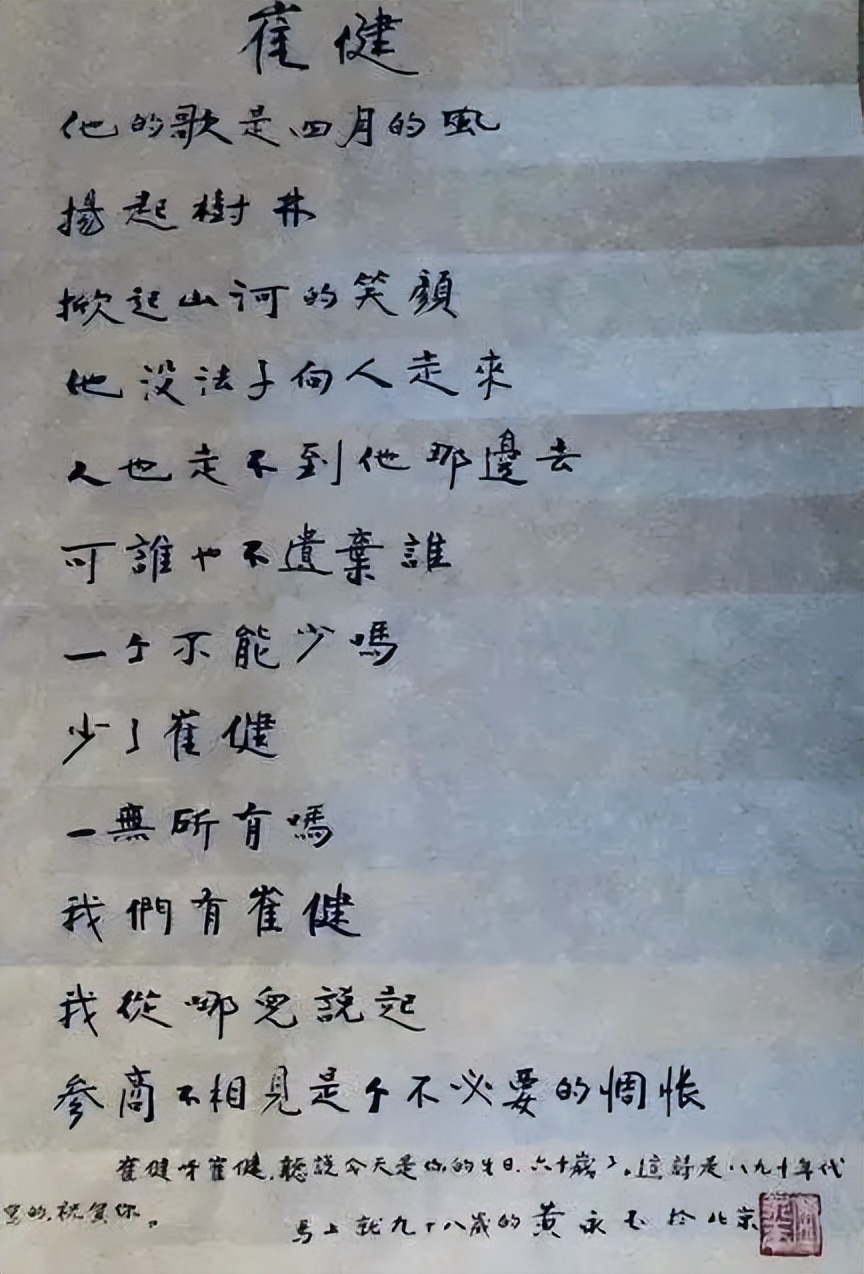 崔健
他的歌是四月的風
揚起樹林
掀起山河的笑顏
他没法子向人走來
人也走不到他那邊去
可誰也不遺棄誰
一个不能少嗎
少了崔健
一無所有嗎
我們有崔健
我從哪兒說起
參商不相見是个不必要的惆悵
崔健呀崔健，聽說今天是你的生日，六十歲了。這詩是八九十年代
寫的，祝賀你。
馬上就九十八歲的黄永玉於北京